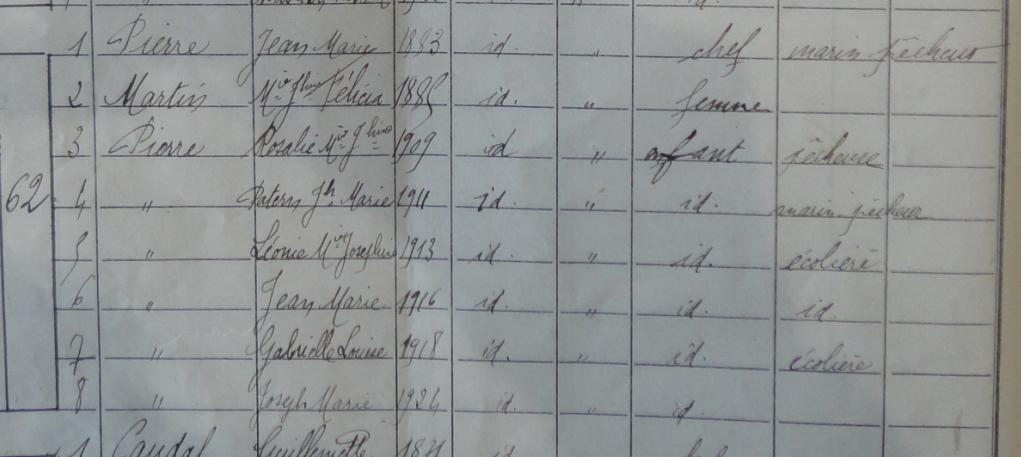 1 Pierre Jean Marie 1883 id. " chef marin-pêcheur
2 Martin Mie Jhine Félicia 1885 id. " femme
3 Pierre Rosalie Mie Jhine 1909 id " enfant pêcheuse
62 4 " Patern Jh Marie 1911 id. " id. marin-pêcheur
5 " Léonie Mie Josephine 1913 id. " id. écolière
6 " Jean Marie 1916 id. " id. id.
7 " Gabrielle Louise 1918 id. " id. écolière
8 " Joseph Marie 1926 id. " id
1 Caudal Guillemette id